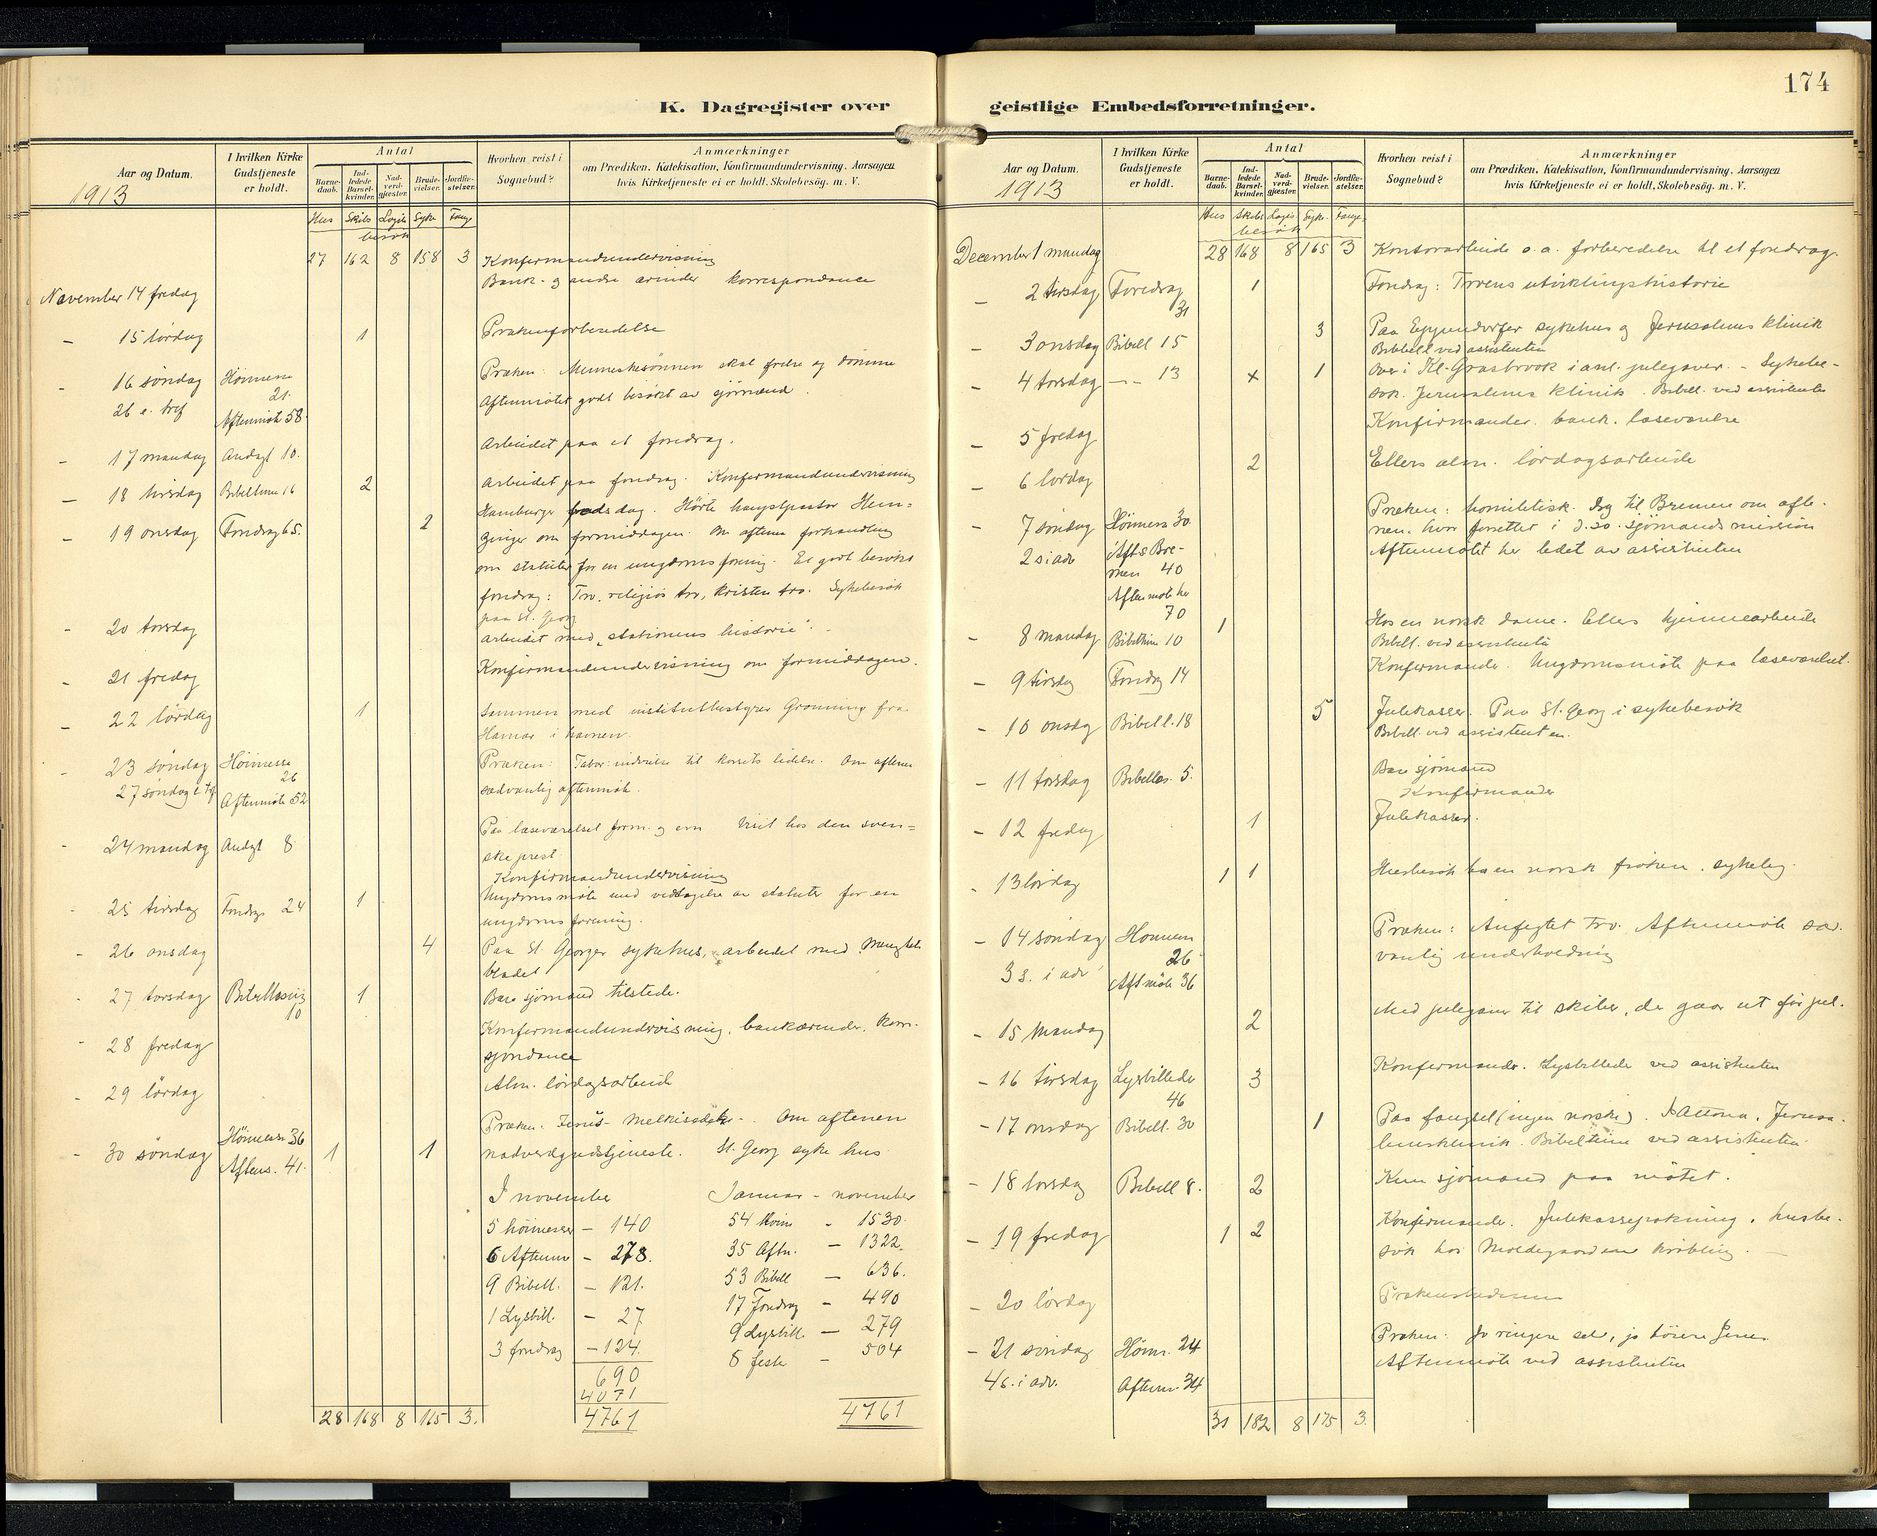 K. Dagregister over
Aar og Datum.
1913
I hvilken Kirke
Gudstjeneste
er holdt.
Antal
Barne-
daab.
Ind-
ledede
Barsel-
kvinder.
Nad-
verd-
gjæster.
Brude-
vielser.
Jordfæ-
stelser.
Hvorhen reist i
Sognebud?
Anmærkninger
om Prædiken, Katekisation, Konfirmandundervisning, Aarsagen
hvis Kirketjeneste ei er holdt, Skolebesøg. m. V.
Hus Skibs Logis Syke Fange
besøk
27 162 8 158 3 Konfirmandundervisning
November 14 fredag Bank- og andre ærinder korrespondance
- 15 lørdag 1 Prækenforberedelse
- 16 søndag Høimesse 21. Præken: Menneskesønnen skal frelse og dømme
26 e. tref Aftenmøte 58. Aftenmøtet godt besøkt av sjømænd.
- 17 mandag Andagt 10. Arbeidet paa et foredrag.
- 18 tirsdag Bibeltime 16 2 Arbeidet paa foredrag. Konfirmandundervisning
- 19 onsdag Foredrag 65. 2 Hamburger bodsdag. Hørte hauptpastor
om formiddagen. Om aftenen forhandling
om statuter for en ungdomsforening. Et godt besøkt
foredrag: Tro, religiøs tro, kristen tro. Sykebesøk
paa St. Georg
- 20 torsdag Arbeidet med "stationens historie".
- 21 fredag Konfirmandundervisning om formiddagen.
- 22 lørdag 1 Sammen med institutbestyrer Grønning fra
Hamar i havnen.
- 23 søndag Høimesse 26 Præken: Tabor: indvielse til korsets lidelse. Om aftenen
27 søndag e. tref Aftenmøte 52 sædvanlig aftenmøte.
- 24 mandag Andagt 8 Paa læseværelset form. og em. Visit hos den sven=
ske prest.
Konfirmandundervisning
- 25 tirsdag Foredrag 24 1 Ungdomsmøte med vedtagelse av statuter for en
ungdomsforening.
- 26 onsdag 4 Paa St. Georger sykehus, arbeidet med
bladet
- 27 torsdag 10 1 Bare sjømænd tilstede.
- 28 fredag Konfirmandundervisning, bankærinder, korre-
spondance
- 29 lørdag Alm. lørdagsarbeide
- 30 søndag Høimesse 36 1 1 Præken: Jesus - Melkisedek -. Om aftenen
Aftens. 41. nadverdgudstjeneste. St. Georg syke hus
I november Januar - november
5 høimesser - 140 54 Høim - 1530.
6 Aftenm - 278. 35 Aftn. - 1322.
9 Bibell. - 121. 53 Bibell - 636.
1 Lysbill. - 27 17 Foredrag - 490
3 foredrag - 124. 9 Lysbill. - 279
690 8 feste - 504
4071
4761 4761
28 168 8 165 3.
174
geistlige Embedsforretninger.
Aar og Datum.
1913
I hvilken Kirke
Gudstjeneste
er holdt.
Antal
Barne-
daab.
Ind-
ledede
Barsel-
kvinder.
Nad-
verd-
gjæster.
Brude-
vielser.
Jordfæ-
stelser.
Hvorhen reist i
Sognebud?
Anmærkninger
om Prædiken, Katekisation, Konfirmandundervisning, Aarsagen
hvis Kirketjeneste ei er holdt, Skolebesøg. m. V.
Hus Skibs Logis Syke- Fange.
besøk
December 1 mandag 28 168 8 165 3 Kontorarbeide o. a. forberedelse til et foredrag
- 2 tirsdag Foredrag 31 1 Foredrag: Troens utviklingshistorie
- 3 onsdag Bibell 15 3 Paa Eppendorfer sykehus og Jerusalems klinik
Bibbell ved assistenten
- 4 torsdag -- 13 x 1 Over i Kl. Grasbrook i anl. julegaver. - Sykebe-
søk. Jerusalems klinik. Bibell. ved assistenten
- 5 fredag Konfirmander. bank. læseværelse
- 6 lørdag 2 Ellers alm. lørdagsarbeide
- 7 søndag Høimesse 30 Præken: homiletisk. Jeg til Bremen om afte-
2 s. i adv Aft. i Bre- nen. sjømandsmission
men 40 Aftenmøtet her ledet av assistenten
Aftenmøte her
70
- 8 mandag Bibeltime 10 1 Hos en norsk dame. Ellers hjemmearbeide
Bibell. ved assistenten
- 9 tirsdag Foredrag 14 Konfirmander. Ungdomsmøte paa læseværelset.
- 10 onsdag Bibell. 18 5 Julekasser. Paa St. Georg i sykebesøk
Bibell. ved assistenten.
- 11 torsdag Bibelles. 5. Bare sjømænd
Konfirmander
- 12 fredag 1 Julekasser.
- 13 lørdag 1 1 Husbesøk hos en norsk frøken, sykelig.
- 14 søndag Høimesse 26 Præken: Anfegtet tro. Aftenmøte sæd-
3 s. i adv Aftmøte 36 vanlig underholdning
- 15 mandag 2 Med julegaver til skiber, de gaar ut før jul.
- 16 tirsdag Lysbilleder 46 3 Konfirmander. Lysbilleder ved assistenten
- 17 onsdag Bibell. 30 1 Paa fængsel (ingen norske). I Altona, Jerusa-
lemsklinik. Bibeltime ved assistenten.
- 18 torsdag Bibell 8. 2 Kun sjømænd paa møtet.
- 19 fredag 1 2 Konfirmander. Julekassepakning, husbe-
søk hos
- 20 lørdag
- 21 søndag Høim. 24 Præken: Jo ringere selv, jo større Jesus
4 s. i adv. Aftenm. 34 Aftenmøte ved assistenten
31 182 8 175 3.